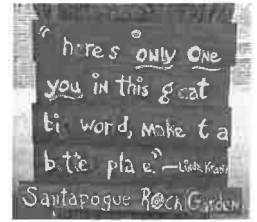 "here's only one
you in this great
big world, make it a
better place." —Linda
Santapogue Rock Garden